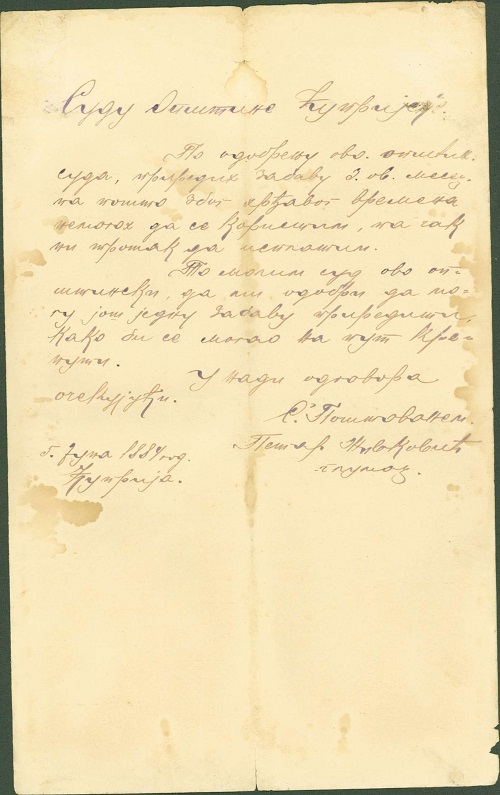 Суду Општине Ћупријске.
По одобрењу ово. општин.
суда, приредих забаву 3. ов. месец.
па пошто због рђавог времена
немогох да се користим, па чак
ни трошак да исплатим.
То молим суд ово оп-
штински, да ми одобри да мо-
гу још једну забаву приредити,
како би се могао на пут кре-
нути.
У нади одговора
очекујући.
С' Поштовањем.
Петар Живковић
глумац.
6. Јуна 1884 год.
Ћуприја.